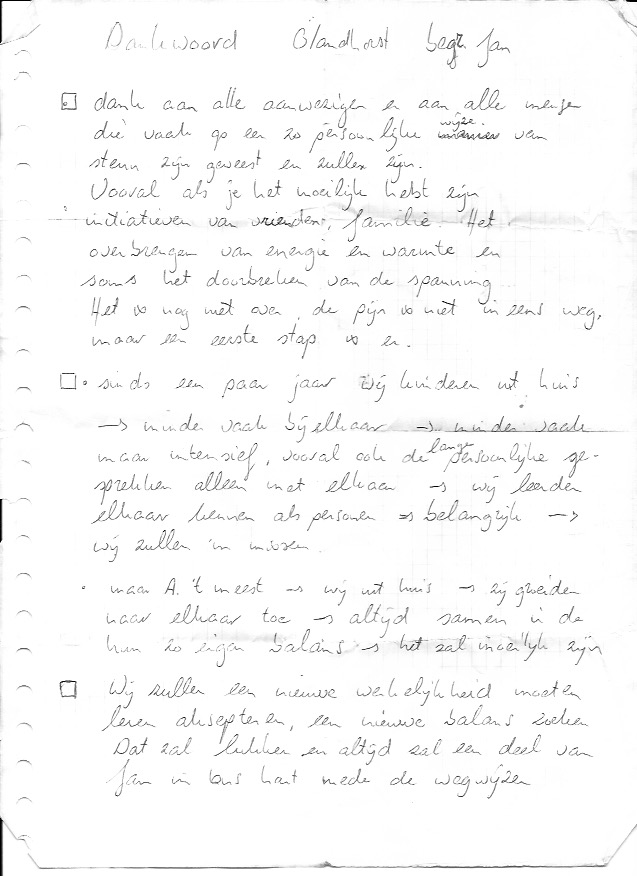 Dankwoord Olandhorst begr Jan
dank aan alle aanwezigen en aan alle mensen
die vaak op een zo persoonlijke wijze van
steun zijn geweest en zullen zijn.
Vooral als je het moeilijk hebt zijn
initiatieven van vrienden, familie. Het
overbrengen van energie en warmte en
soms het doorbreken van de spanning
Het is nog niet over, de pijn is niet ineens weg,
maar een eerste stap is er.
• sinds een paar jaar wij kinderen uit huis
→ minder vaak bij elkaar → minder vaak
maar intensief, vooral ook de lange persoonlijke ge-
sprekken alleen met elkaar → wij leerden
elkaar kennen als personen → belangrijk →
wij zullen 'm missen.
• maar A. 't meest → wij uit huis → zij groeiden
naar elkaar toe → altijd samen in de
hun zo eigen balans → het zal moeilijk zijn
Wij zullen een nieuwe werkelijkheid moeten
leren aksepteren, een nieuwe balans zoeken
Dat zal lukken en altijd zal een deel van
Jan in ons hart mede de weg wijzen